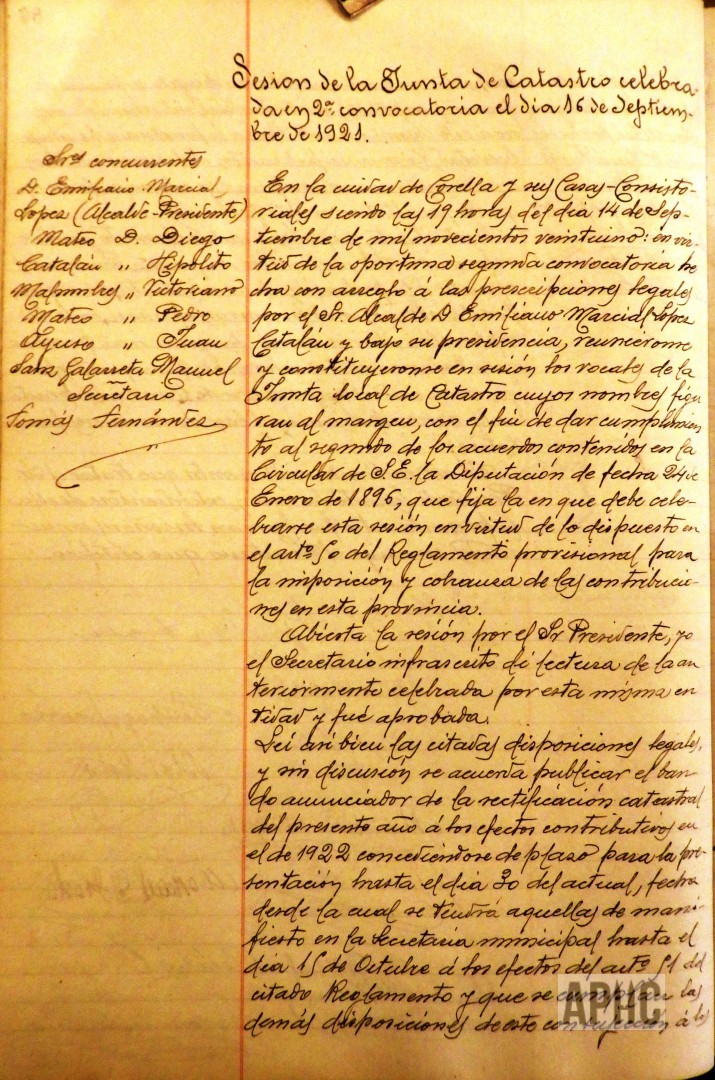 Sesion de la Junta de Catastro celebra-
da en 2ª convocatoria el dia 16 de Septiem-
bre de 1921.
Sres concurrentes
D. Emiliano Marcial
Lopez (Alcalde-Presidente)
Mateo D. Diego
Catalán " Hipólito
Malumbres " Victoriano
Mateo " Pedro
Ayuso " Juan
Sanz Galarreta Manuel
Secretario
Tomás Fernández
En la ciudad de Corella y sus Casas-Consisto-
riales siendo las 19 horas del dia 14 de Sep-
tiembre de mil novecientos veintiuno: en vir-
tud de la oportuna segunda convocatoria he
cha con arreglo á las prescripciones legales
por el Sr. Alcalde D Emiliano Marcial Lopez
Catalán y bajo su presidencia, reuniéronse
y constituyeronse en sesión los vocales de la
Junta local de Catastro cuyos nombres figu
ran al margen, con el fin de dar cumplimien
to al segundo de los acuerdos contenidos en la
Circular de S.E. la Diputación de fecha 24 de
Enero de 1896, que fija la en que debe cele-
brarse esta sesión en virtud de lo dispuesto en
el artº 50 del Reglamento provisional para
la imposición y cobranza de las contribucio-
nes en esta provincia.
Abierta la sesión por el Sr Presidente, yo
el Secretario infrascrito di lectura de la an
teriormente celebrada por esta misma en
tidad y fué aprobada.
Leí asi bien las citadas disposiciones legales,
y sin discusión se acuerda publicar el ban-
do anunciador de la rectificación catastral
del presente año á los efectos contributivos en
el de 1922 concediéndose de plazo para la pre-
sentación hasta el dia 30 del actual, fecha
desde la cual se tendrá aquellas de mani-
fiesto en la Secretaria municipal hasta el
dia 15 de Octubre á los efectos del artº 51 del
citado Reglamento y que se cumplan las
demás disposiciones de este con sujeción á los
APHC